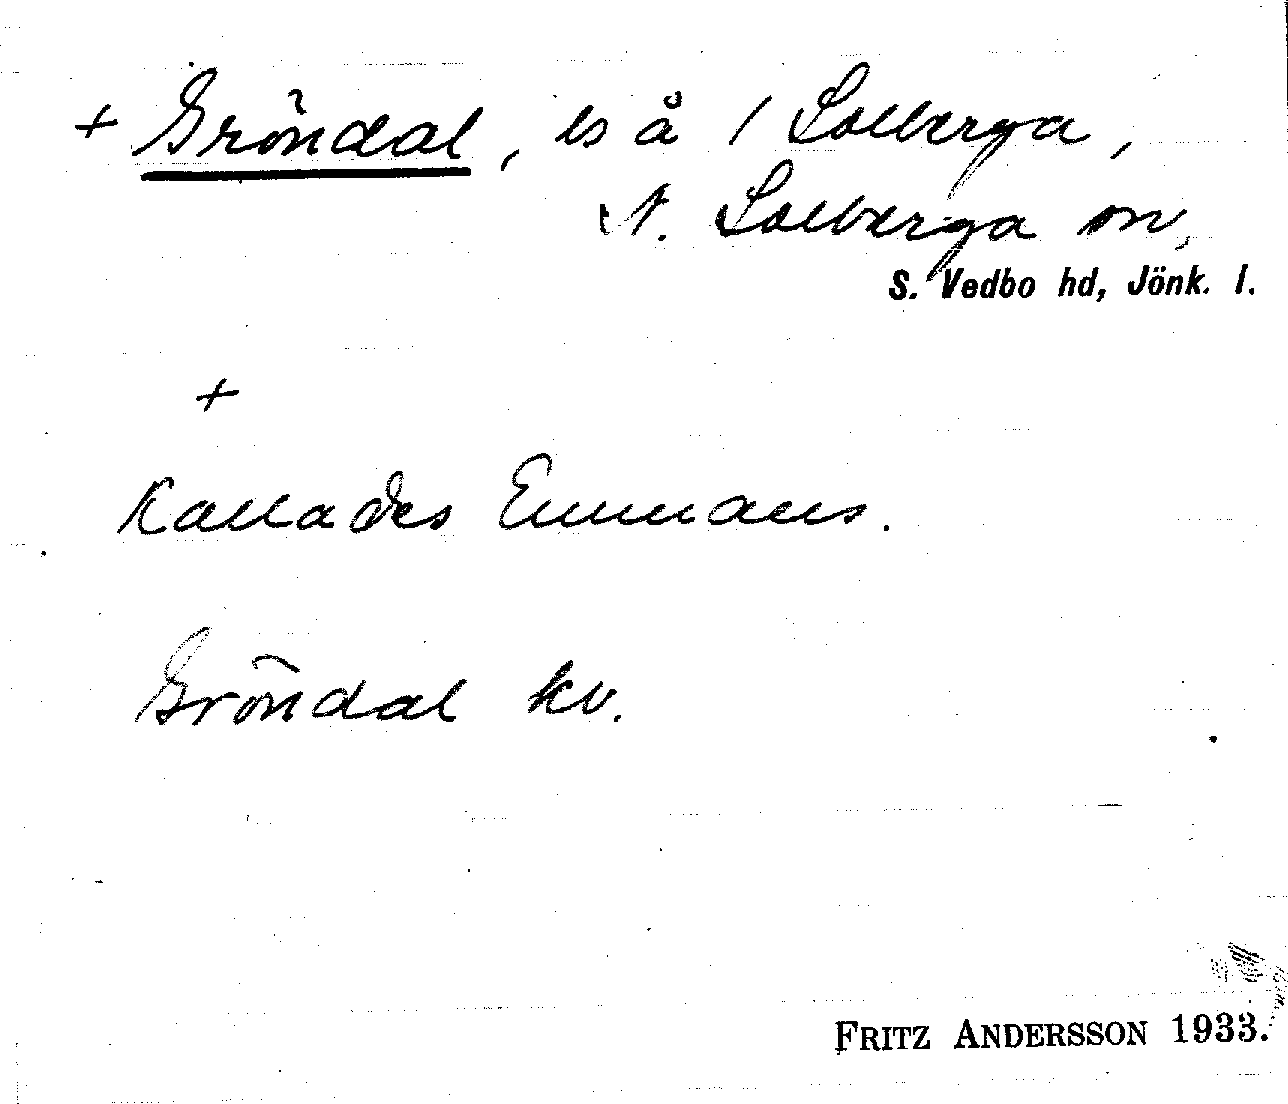 + Gröndal, ls å 1 Solberga,
N. Solberga sn,
S. Vedbo hd, Jönk. l.
+
Kallades Emmaus.
Gröndal kv.
FRITZ ANDERSSON 1933.